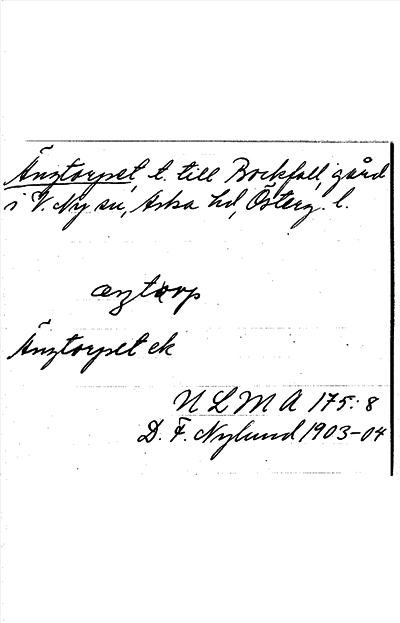 Änztorpet, t. till Bockfall, gård
i V. Ny sn, Aska hd, Österg. l.
æztorp
Änztorpet ek
N L M A 175:8
D. F. Nylund 1903-04